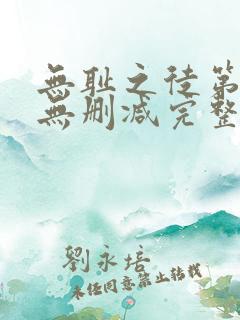 無耻之徒第
無删减完整
劉永培
未经同意禁止转载